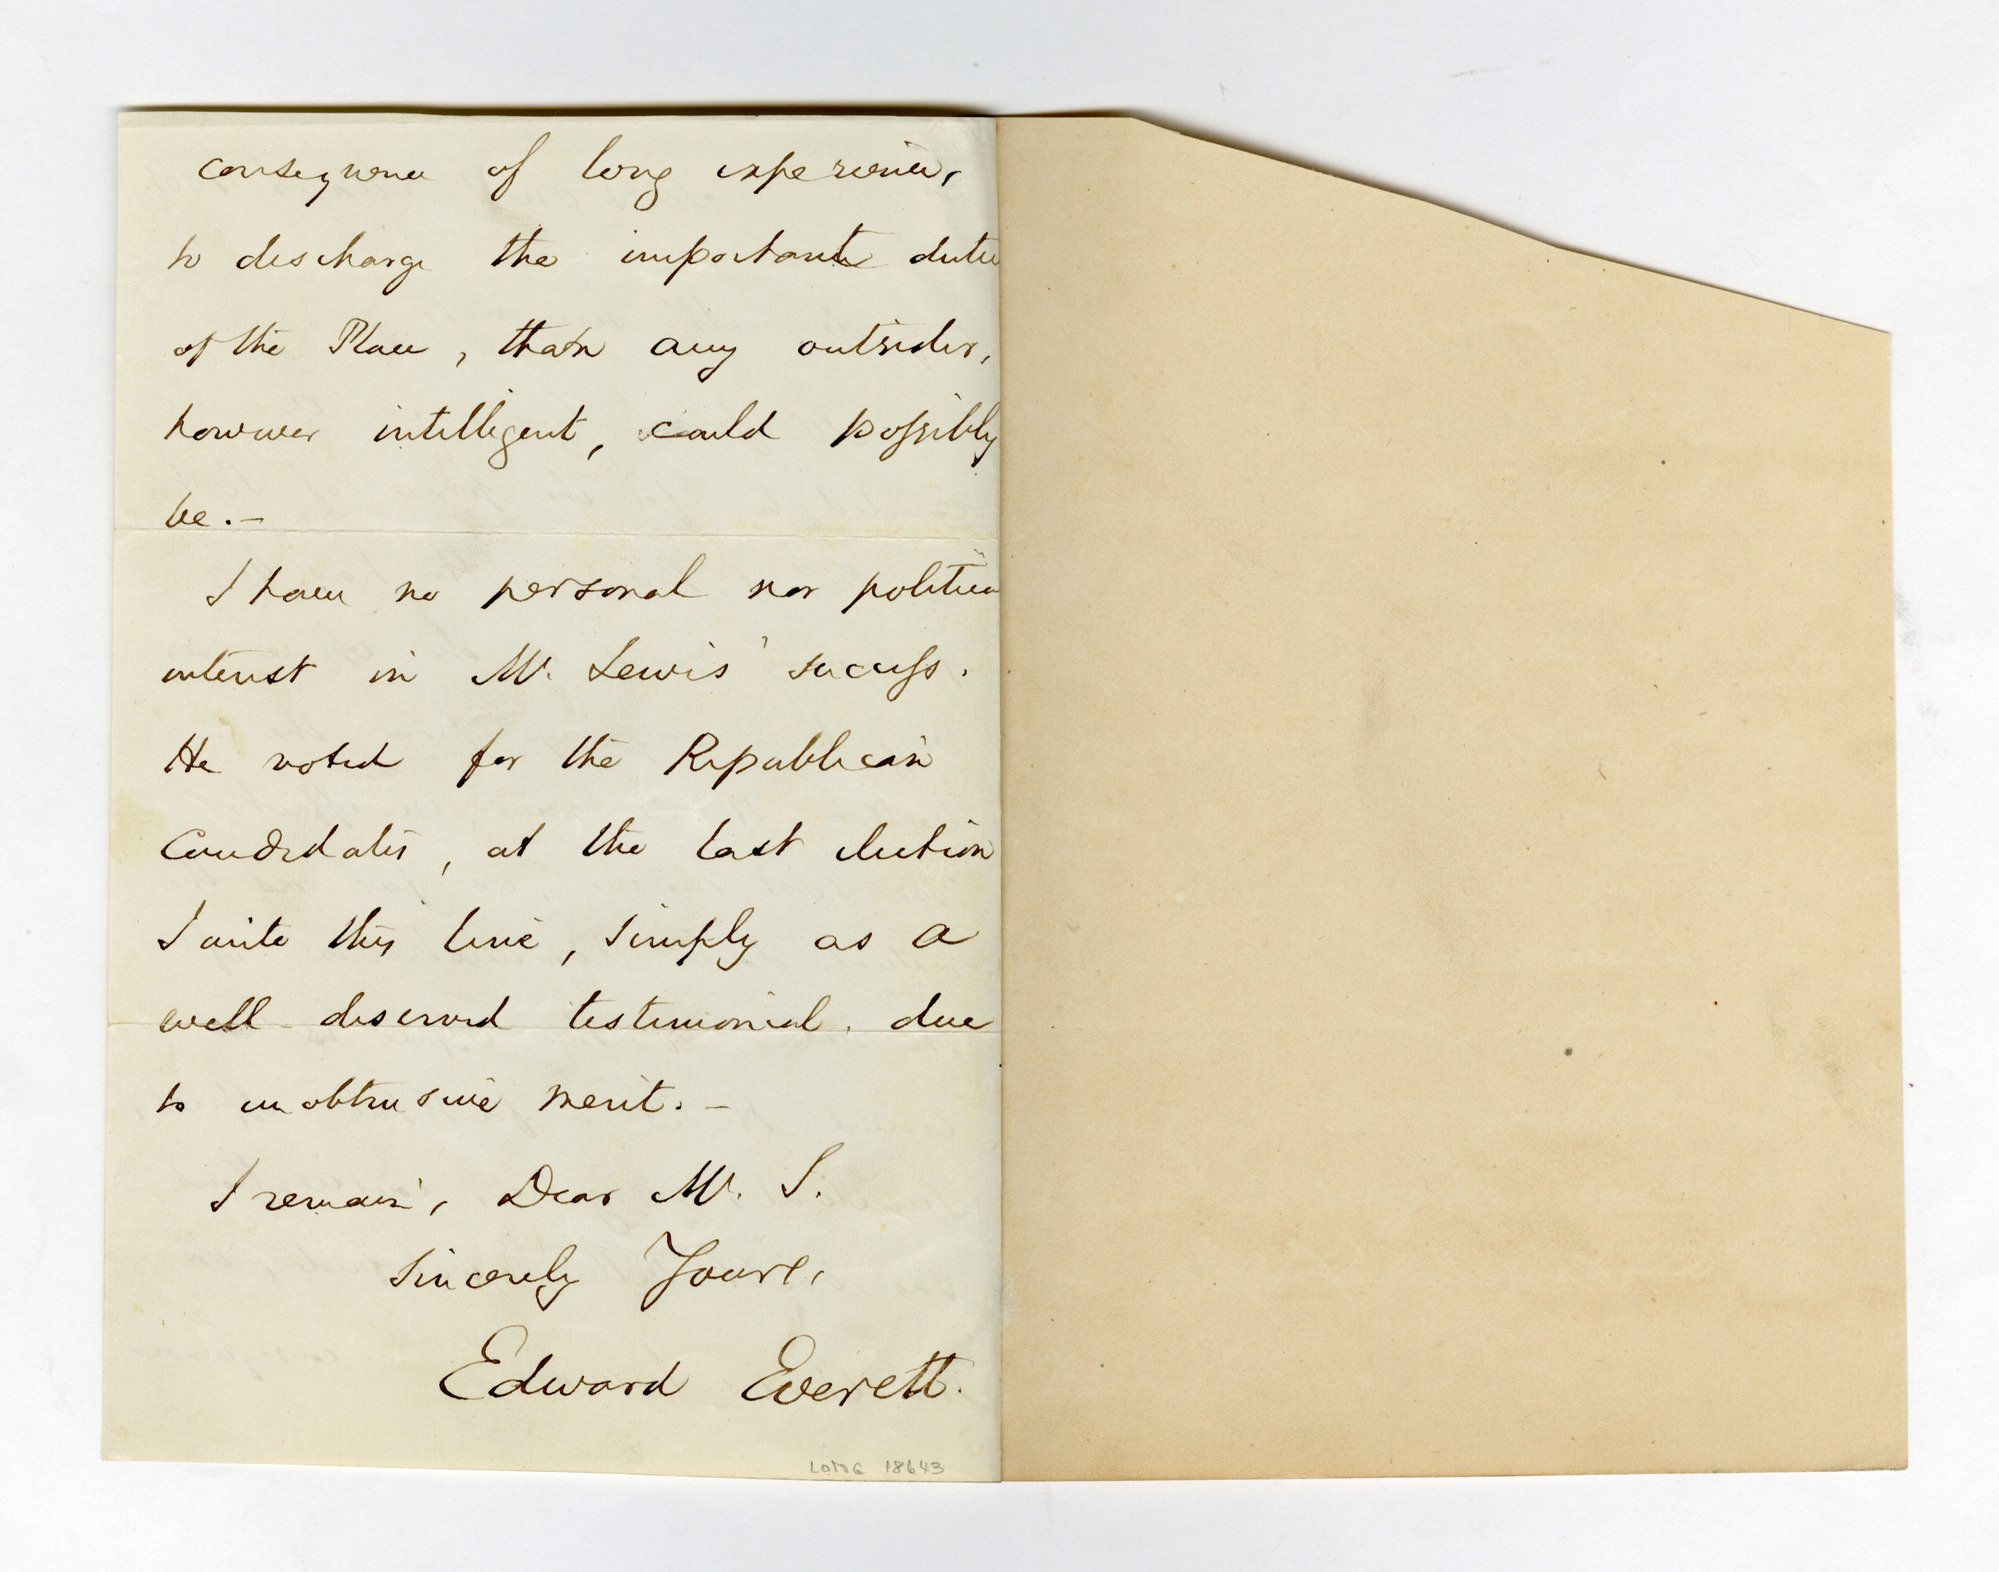 consequence of long experience,
to discharge the important duties
of the Place, than any outsider,
however intelligent, could possibly
be.—
I have no personal nor political
interest in Mr. Lewis' success.
He voted for the Republican
Candidates, at the last election
I write this line, simply as a
well deserved testimonial due
to unobtrusive merit.—
I remain, Dear Mr. S.
Sincerely Yours,
Edward Everett.
LONG 18643